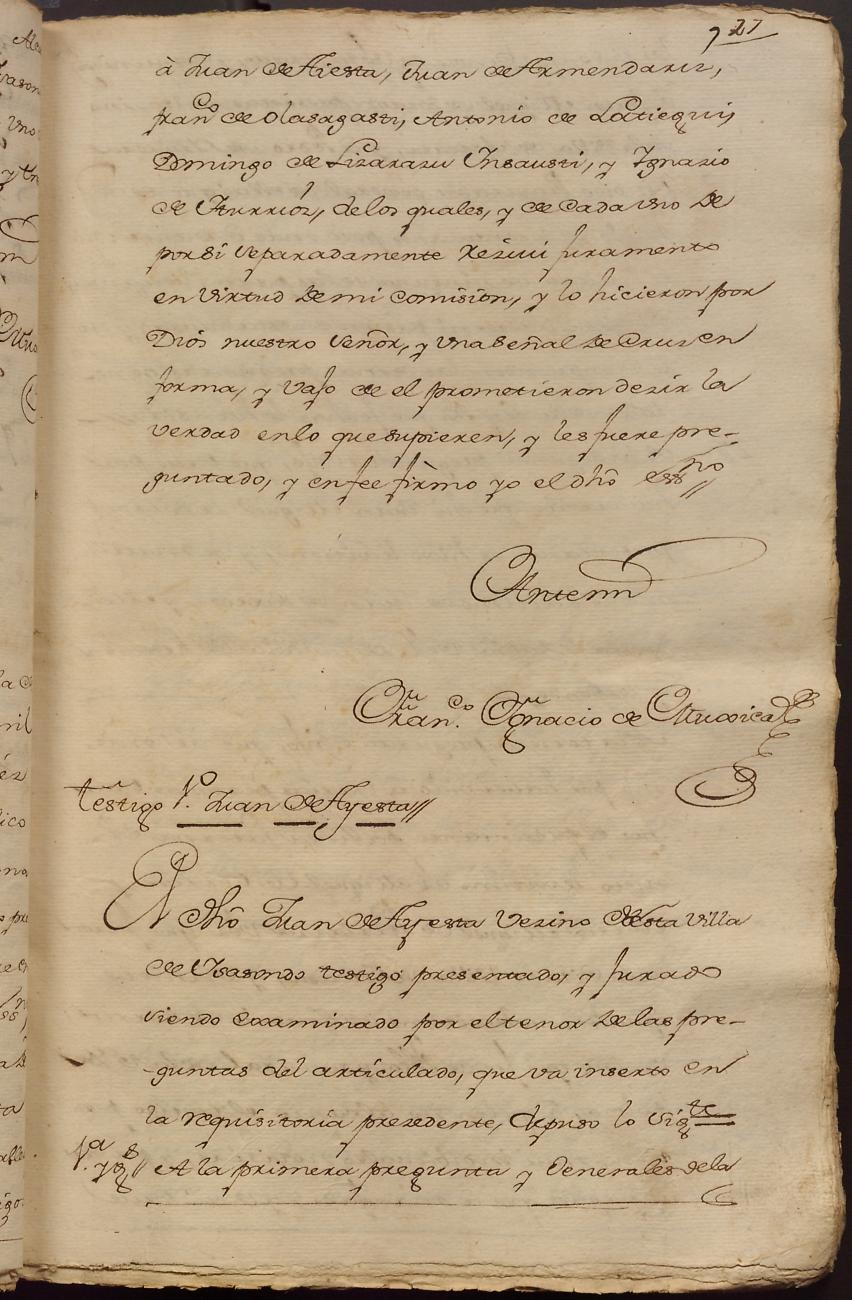 27
à Juan de Aiesta, Juan de Armendariz,
fran.co de Olasagasti, Antonio de Latiegui,
Domingo de Lizarazu Insausti, y Ignazio
de Iturrioz, delos quales, y de cada uno de
por si separadamente Reziui juramento
en virtud de mi comision, y lo hicieron por
Dios nuestro señor, y una señal de Cruz en
forma, y vajo de el prometieron dezir la
verdad enlo que supieren, y les fuere pre-
guntado, y enfee firmo yo el dho essno
Antemi
Fran.co Ignacio de Muxica
testigo 1º. Juan de Ayesta
El dho Juan de Ayesta vezino desta villa
de Isasondo testigo presentado, y jurado
siendo examinado por el tenor delas pre-
guntas del articulado, que va inserto en
la requisitoria prezedente, depuso lo sigte
1.a y gs A la primera pregunta y Generales dela